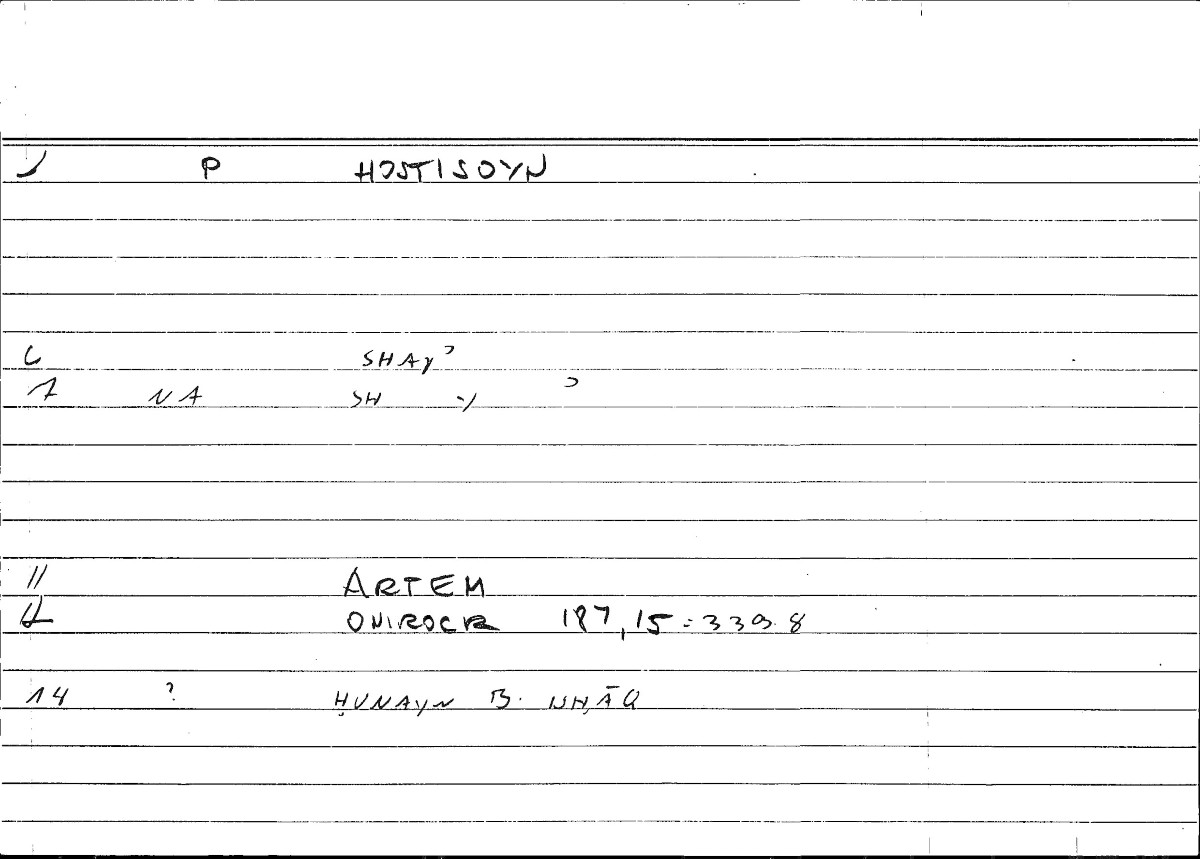 P HOSTISOYN
SHAYʾ
NA SH Y ʾ
11 ARTEM
ONIROCR 187,15 = 339.8
14 ? ḤUNAYN B. ISḤĀQ